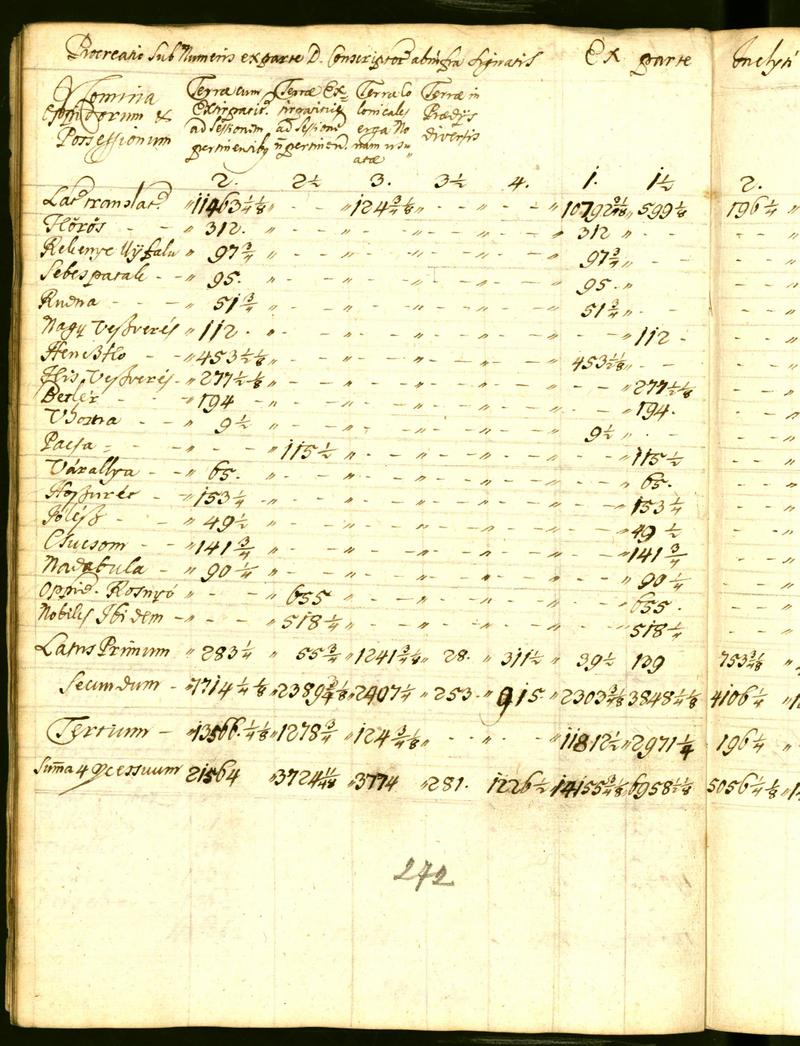 Procreatio Sub Numeris ex parte D. Conscriptor. ab infra Signatis Ex parte Inclyti
Nomina
Oppidorum &
Possessionum
Terræ cum
Exirpatit.
ad Sessionem
pertinentib9
Terræ Ex-
tirpatitiæ
ad Sessione
ñ pertinen.
Terra Co
lonicales
erga No
nam usu
atæ
Terræ in
Prædijs
diversis
2. 2½ 3. 3½ 4. 1. 1½ 2.
Lat. translat. 11463 ½ ⅛ 124 ¾ ⅛ 10792 ¾ ⅛ 599 ⅛ 196 ¼
312. 312
Rekenye Ujfalu 97 ¾ 97 ¾
Sebespatak 95. 95
Rudna 51 ¾ 51 ¾
Nagy Veszverés 112 112
Henczko 453 ½ ⅛ 453 ½ ⅛
Kis Veszverés 277 ½ ⅛ 277 ½ ⅛
Betlér 194 194.
9½ 9½
Pacsa 115 ½ 115 ½
Várallya 65. 65.
Hoszurét 153 ¼ 153 ¼
49 ½ 49 ½
Csucsom 141 ¾ 141 ¾
Nadabula 90 ¼ 90 ¼
Oppid. Rosnyó 655 655.
Nobiles Ibidem 518 ¼ 518 ¼
Latus Primum 283 ¼ 55 ¾ 1241 ¾ ⅛ 28. 311 ½ 39 ½ 139 753 ¾ ⅛
Secundum 7714 ¼ ⅛ 2389 2407 ½ 253. 915. 2303 ¾ ⅛ 3848 ½ ⅛ 4106 ¼
Tertium 13566. ¼ ⅛ 1278 ¾ 124 ¾ ⅛ 11812 ½ 2971 ¼ 196 ¼
Suma 4 pcessuum 21564 3724 3774 281. 1226 ½ 14155 ¾ ⅛ 6958 ½ ⅛ 5056 ½ ⅛
242